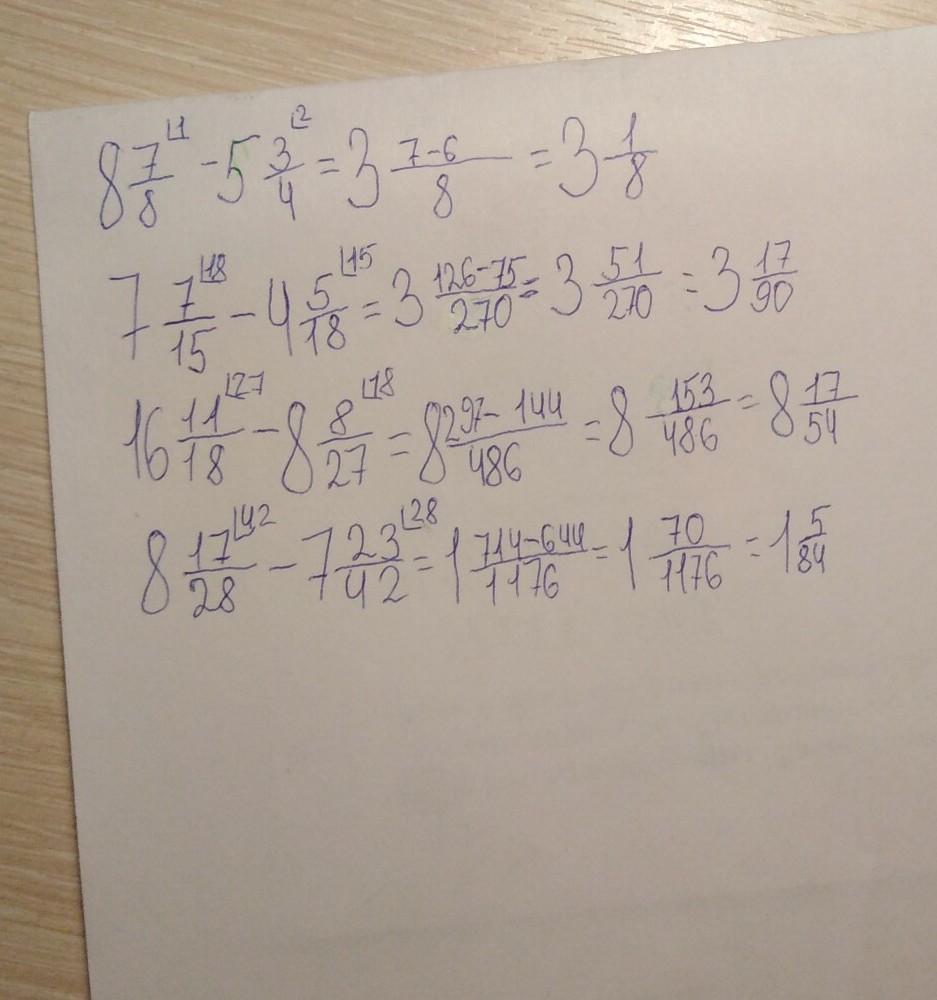 8 7/8 ⌊1 - 5 3/4 ⌊2 = 3 (7-6)/8 = 3 1/8
7 7/15 ⌊18 - 4 5/18 ⌊15 = 3 (126-75)/270 = 3 51/270 = 3 17/90
16 11/18 ⌊27 - 8 8/27 ⌊18 = 8 (297-144)/486 = 8 153/486 = 8 17/54
8 17/28 ⌊42 - 7 23/42 ⌊28 = 1 (714-644)/1176 = 1 70/1176 = 1 5/84